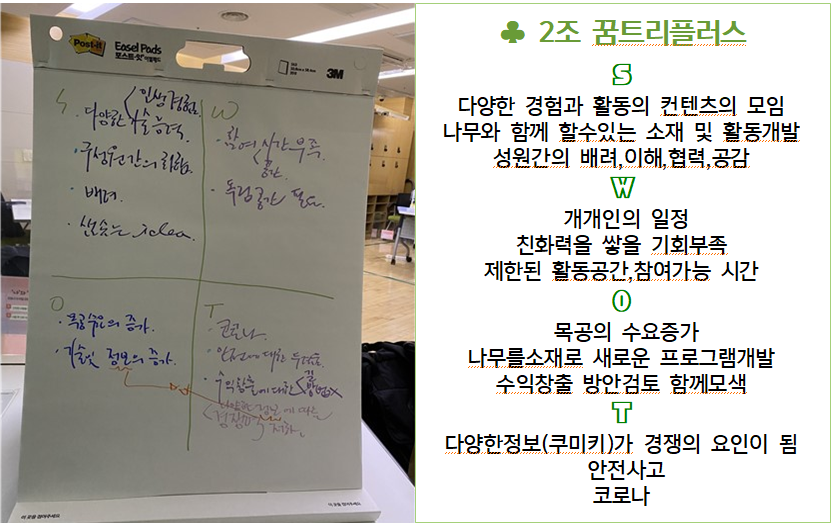 Post-it
Easel Pads
포스트-잇
3M
S
인생경험
다양한 기술능력
구성원간의 화합
배려
샘솟는 idea
W
참여 시간부족
공간
독립공간 필요
O
목공수요의 증가
기술및 정보의 증가
T
코로나
안전에 대한
수익창출에 대한
다양한 정보에 따른
이 곳을 접어주세요
이 곳을 접어주세요
♣ 2조 꿈트리플러스
S
다양한 경험과 활동의 컨텐츠의 모임
나무와 함께 할수있는 소재 및 활동개발
성원간의 배려,이해,협력,공감
W
개개인의 일정
친화력을 쌓을 기회부족
제한된 활동공간,참여가능 시간
O
목공의 수요증가
나무를소재로 새로운 프로그램개발
수익창출 방안검토 함께모색
T
다양한정보(쿠미키)가 경쟁의 요인이 됨
안전사고
코로나